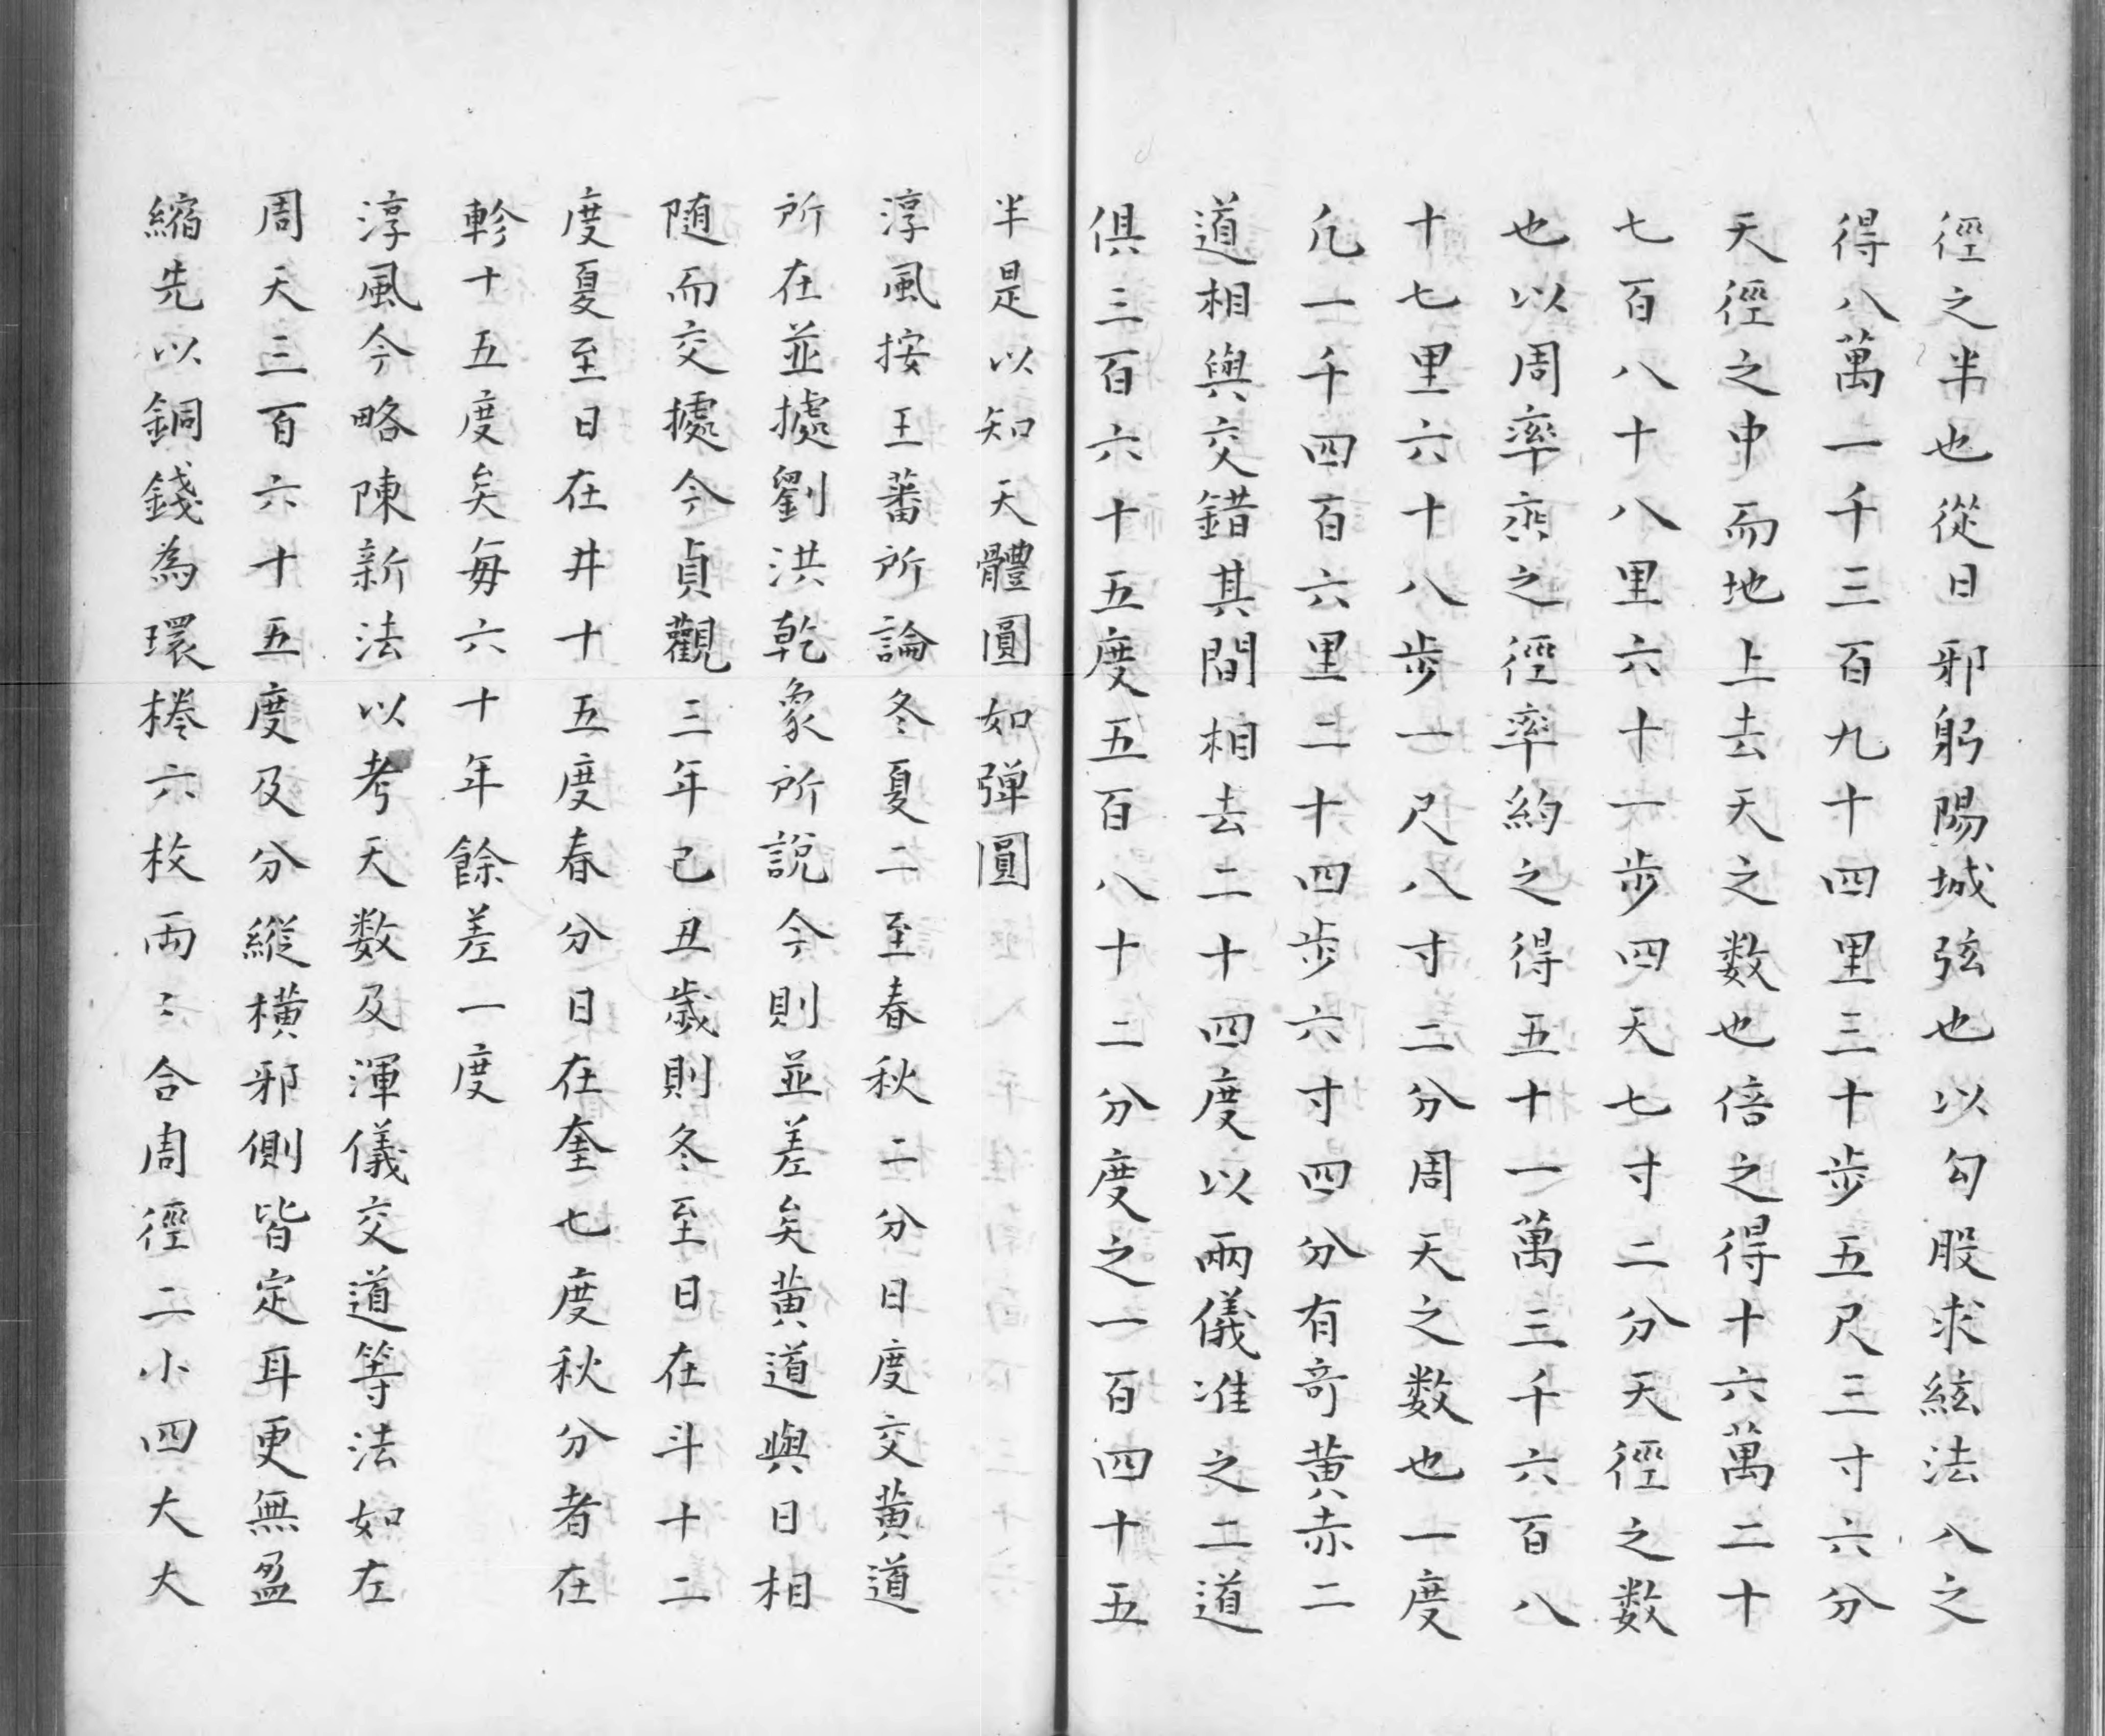 徑之半也從日邪躬陽城弦也以勾股求絃法入之
得八萬一千三百九十四里三十步五尺三寸六分
天徑之中而地上去天之数也倍之得十六萬二十
七百八十八里六十一步四天七寸二分天徑之数
也以周率乘之徑率約之得五十一萬三千六百八
十七里六十八步一尺八寸二分周天之数也一度
凢一千四百六里二十四步六寸四分有奇黃赤二
道相與交錯其間相去二十四度以兩儀准之二道
俱三百六十五度五百八十二分度之一百四十五
半是以知天體圓如弾圓
淳風按王蕃所論冬夏二至春秋二分日度交黃道
所在並㨿劉洪乾象所說今則並差矣黃道與日相
随而交㨿今貞觀三年己丑歲則冬至日在斗十二
度夏至日在井十五度春分日在奎七度秋分者在
軫十五度矣每六十年餘差一度
淳風今略陳新法以考天数及渾儀交道等法如左
周天三百六十五度及分縱橫邪側皆定耳更無盈
縮先以銅錢為環棬六枚兩〻合周徑二小四大大